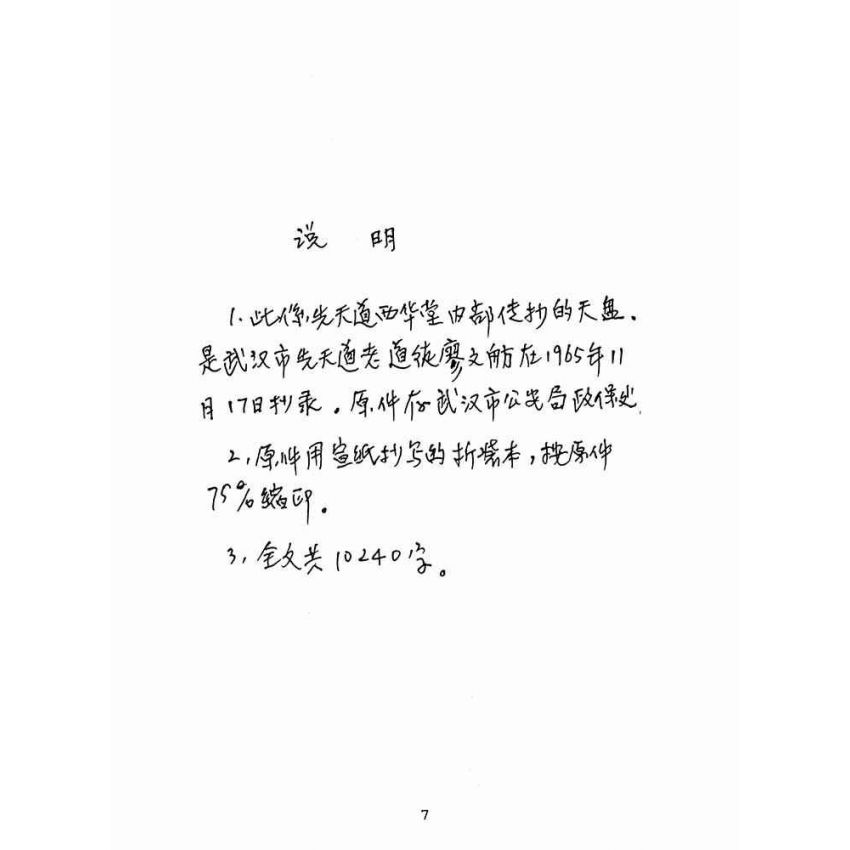 说 明
1. 此系先天道西华堂内部传抄的天盘.
是武汉市先天道老道徒廖文舫在1965年11
月17日抄录。原件存武汉市公安局政保处
2, 原件用宣纸抄写的折装本, 按原件
75%缩印。
3, 全文共10240字。
7